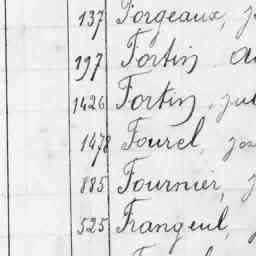 137 Forgeaux, j
197 Fortin, a
1426 Fortin, jul
1478 Fourel, jos
885 Fournier, j
525 Frangeul, j